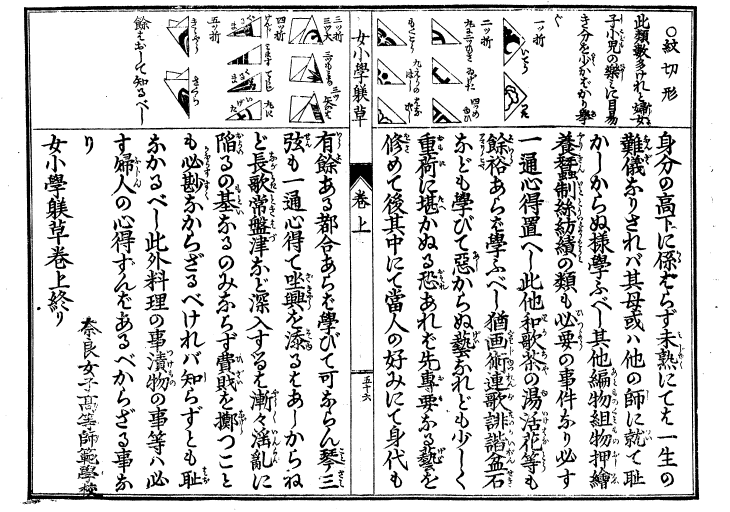 ○紋切形
此類數多けれと婦女
子小児の樂ミに目易
き分を少かばかり擧
ぐ
一ッ折
二ッ折
三ッ折
四ッ折
五ッ折
餘はおして知るべし
女小學躾草
卷上
五十六
身分の高下に係はらず未熟にては一生の
難儀なりされバ其母或ハ他の師に就て恥
かしからぬ樣學ふべし其他編物組物押繪
養蠶制絲紡績の類も必要の事件なり必す
一通心得置へし此他和歌茶の湯活花等も
餘裕あらば學ふべし猶画術連歌誹諧盆石
なども學びて惡からぬ藝なれども少しく
重荷に堪かぬる恐あれば先專要なる藝を
修めて後其中にて當人の好みにて身代も
有餘ある都合あらば學びて可ならん琴三
弦も一通心得て坐興を添るはあしからね
ど長歌常盤津など深入するは漸々淫亂に
陥るの基なるのみならず費賎を擲つこと
も必尠なからざるべけれバ知らずとも恥
なかるべし此外料理の事漬物の事等ハ必
す婦人の心得ずんばあるべからざる事な
り
女小學躾草卷上終り
奈良女子高等師範學校